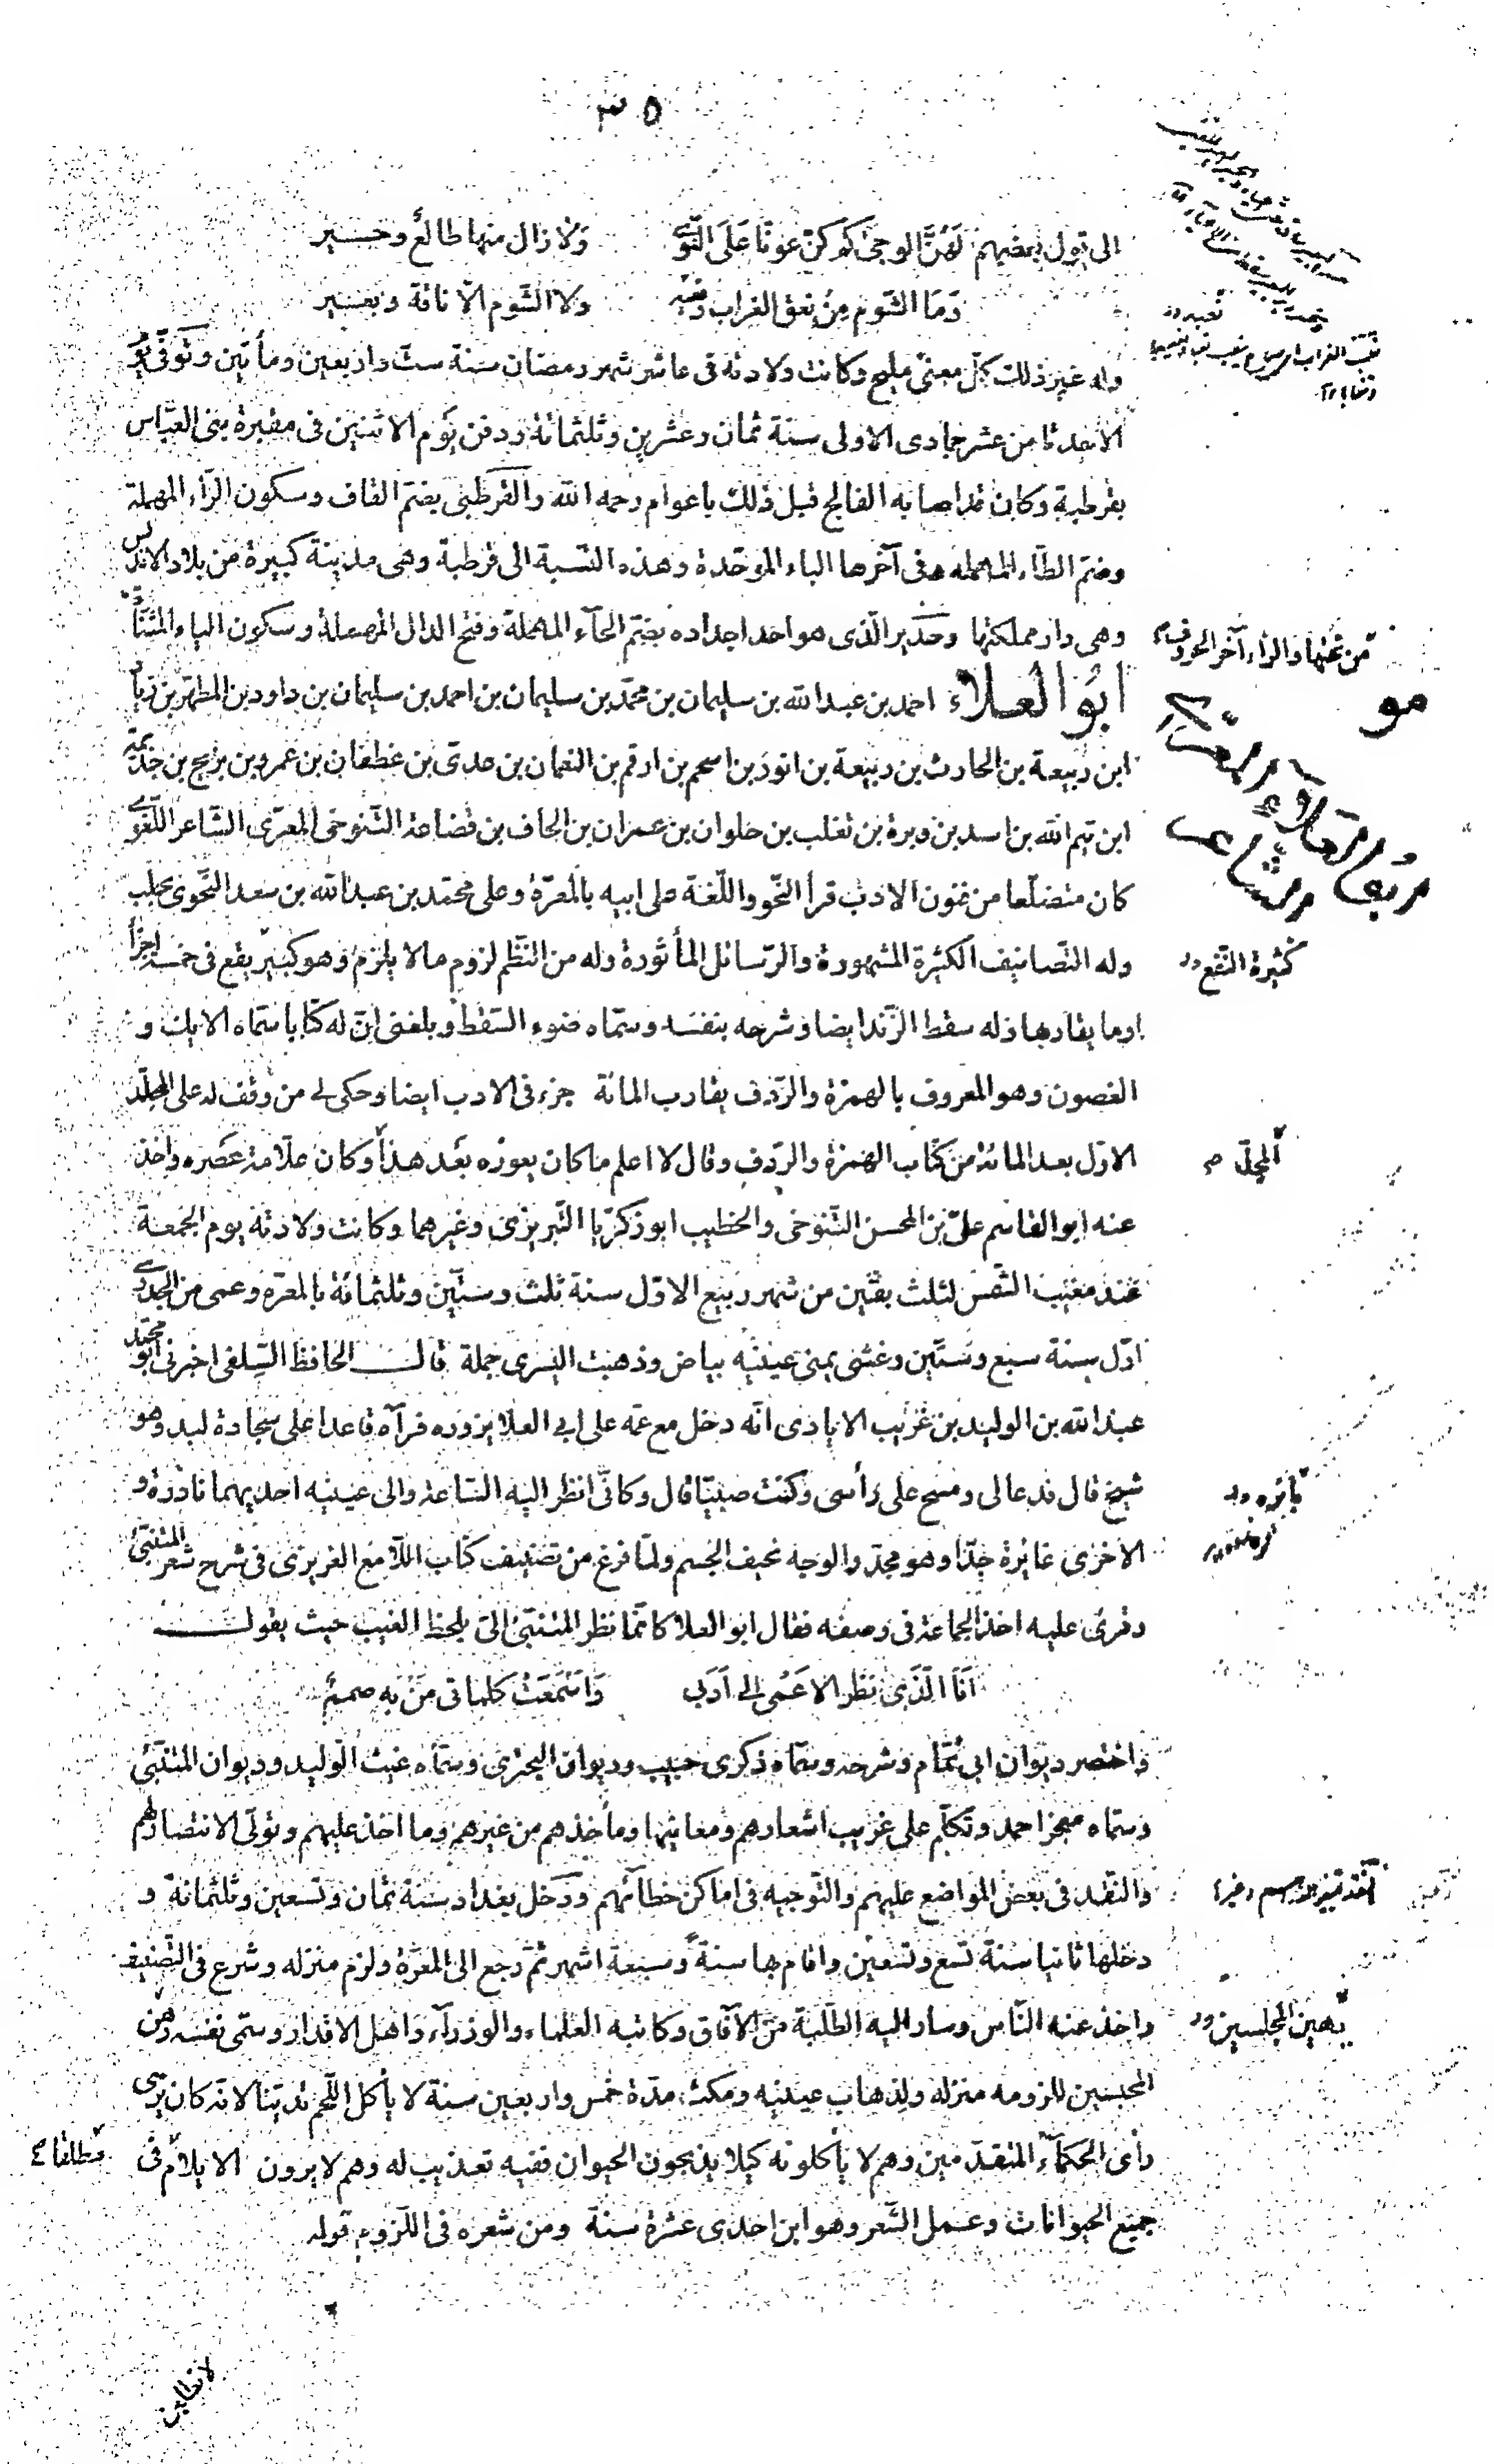 ٣٥
الى قول بعضهم لَهُنَّ الوجى لم كنّ عونًا عَلَى النّوَى ولا زال منها طالع وحسير
وَمَا الشّوم مِن نعق الغراب ونعبه ولا الشّوم الّا ناقة وبعير
وله غير ذلك كلّ معنى مليح وكانت ولادته فى عاشر شهر رمضان سنة ستّ واربعين ومأتين وتوفّى يوم
الاحد ثامن عشر جمادى الاولى سنة ثمان وعشرين وثلثمائة ودفن يوم الاثنين فى مقبرة بنى العبّاس
بقرطبة وكان قد اصابه الفالج قبل ذلك باعوام رحمه الله والقرطبى بضمّ القاف وسكون الرّاء المهملة
وضمّ الطّاء المهملة وفى آخرها الباء الموحّدة وهذه النّسبة الى قرطبة وهى مدينة كبيرة من بلاد الاندلس
وهى دار مملكتها وحدير الّذى هو احد اجداده بضمّ الحآء المهملة وفتح الدال المهملة وسكون الياء المثنّاة
من تحتها والراء آخر الحروف
ابو العلاء احمد بن عبد الله بن سليمان بن محمّد بن سليمان بن احمد بن سليمان بن داود بن المطهّر بن زياد
مو
ابو العلاء المعرّى الشاعر
ابن ربيعة بن الحارث بن ربيعة بن انور بن اسحم بن ارقم بن النعمان بن عدىّ بن غطفان بن عمرو بن بريح بن خذيمة
ابن تيم الله بن اسد بن وبرة بن تغلب بن حلوان بن عمران بن الحاف بن قضاعة التّنوخى المعرّى الشّاعر اللّغوى
كان متضلّعا من فنون الادب قرأ النّحو واللّغة على ابيه بالمعرّة وعلى محمّد بن عبد الله بن سعد النّحوى بحلب
وله التّصانيف الكثيرة المشهورة والرّسائل المأثورة وله من النّظم لزوم ما لا يلزم وهو كبير يقع فى خمسة اجزأ
كثيرة النّفع
او ما يقاربها وله سقط الزّند ايضا وشرحه بنفسه وسمّاه ضوء السّقط وبلغنى انّ له كتابا سمّاه الايك و
الغصون وهو المعروف بالهمزة والرّدف يقارب المائة جزء فى الادب ايضا وحكى لى من وقف له على المجلّد
الاوّل بعد المائة من كتاب الهمزة والردف وقال لا اعلم ما كان يعوزه بعد هذا وكان علّامة عصره واخذ
المجلّد
عنه ابو القاسم علىّ بن المحسن التّنوخى والخطيب ابو زكريّا التّبريزى وغيرهما وكانت ولادته يوم الجمعة
عند مغيب الشّمس لثلث بقّين من شهر ربيع الاوّل سنة ثلث وستّين وثلثمائة بالمعرّة وعمى من الجدرى
اوّل سنة سبع وستّين وغشى يمنى عينيه بياض وذهبت اليسرى جملة قال الحافظ السّلفى اخبرنى ابو محمّد
عبد الله بن الوليد بن غريب الايادى انّه دخل مع عمّه على ابى العلا يزوره فرآه قاعدا على سجّادة لبد وهو
شيخ قال فدعا لى ومسح على رأسى وكنت صبيّا قال وكانّى انظر اليه السّاعة والى عينيه احديهما نادرة و
الاخرى غائرة جدّا وهو مجدّر الوجه نحيف الجسم ولمّا فرغ من تصنيف كتاب اللّامع العزيزى فى شرح شعر المتنبّى
وقرئ عليه اخذ الجماعة فى وصفه فقال ابو العلا كانّما نظر المتنبّئ الىّ بلحظ الغيب حيث يقول
اَنَا الّذى نظر الاعمى الى اَدَبى وَاَسْمَعَتْ كلماتى مَنْ به صمم
واختصر ديوان ابى تمّام وشرحه وسمّاه ذكرى حبيب وديوان البحترى وسمّاه عبث الوليد وديوان المتنبّئ
وسمّاه معجز احمد وتكلّم على غريب اشعارهم ومعانيها ومأخذهم من غيرهم وما اخذ عليهم وتولّى الانتصار لهم
والنقد فى بعض المواضع عليهم والتّوجيه فى اماكن خطائهم ودخل بغداد سنة ثمان وتسعين وثلثمائة و
دخلها ثانيا سنة تسع وتسعين واقام بها سنة وسبعة اشهر ثمّ رجع الى المعرّة ولزم منزله وشرع فى التّصنيف
واخذ عنه النّاس وسار اليه الطّلبة من الآفاق وكاتبه العلماء والوزرآء واهل الاقدار وسمّى نفسه رهن
رهين المجلسين
المحبسين للزومه منزله ولذهاب عينيه ومكث مدّة خمس واربعين سنة لا يأكل اللّحم تديّنا لانّه كان يرى
رأى الحكمآء المتقدّمين وهم لا يأكلونه كيلا يذبحون الحيوان ففيه تعذيب له وهم لا يرون الايلام فى
مطلقا
جميع الحيوانات وعمل الشّعر وهو ابن احدى عشرة سنة ومن شعره فى اللّزوم قوله